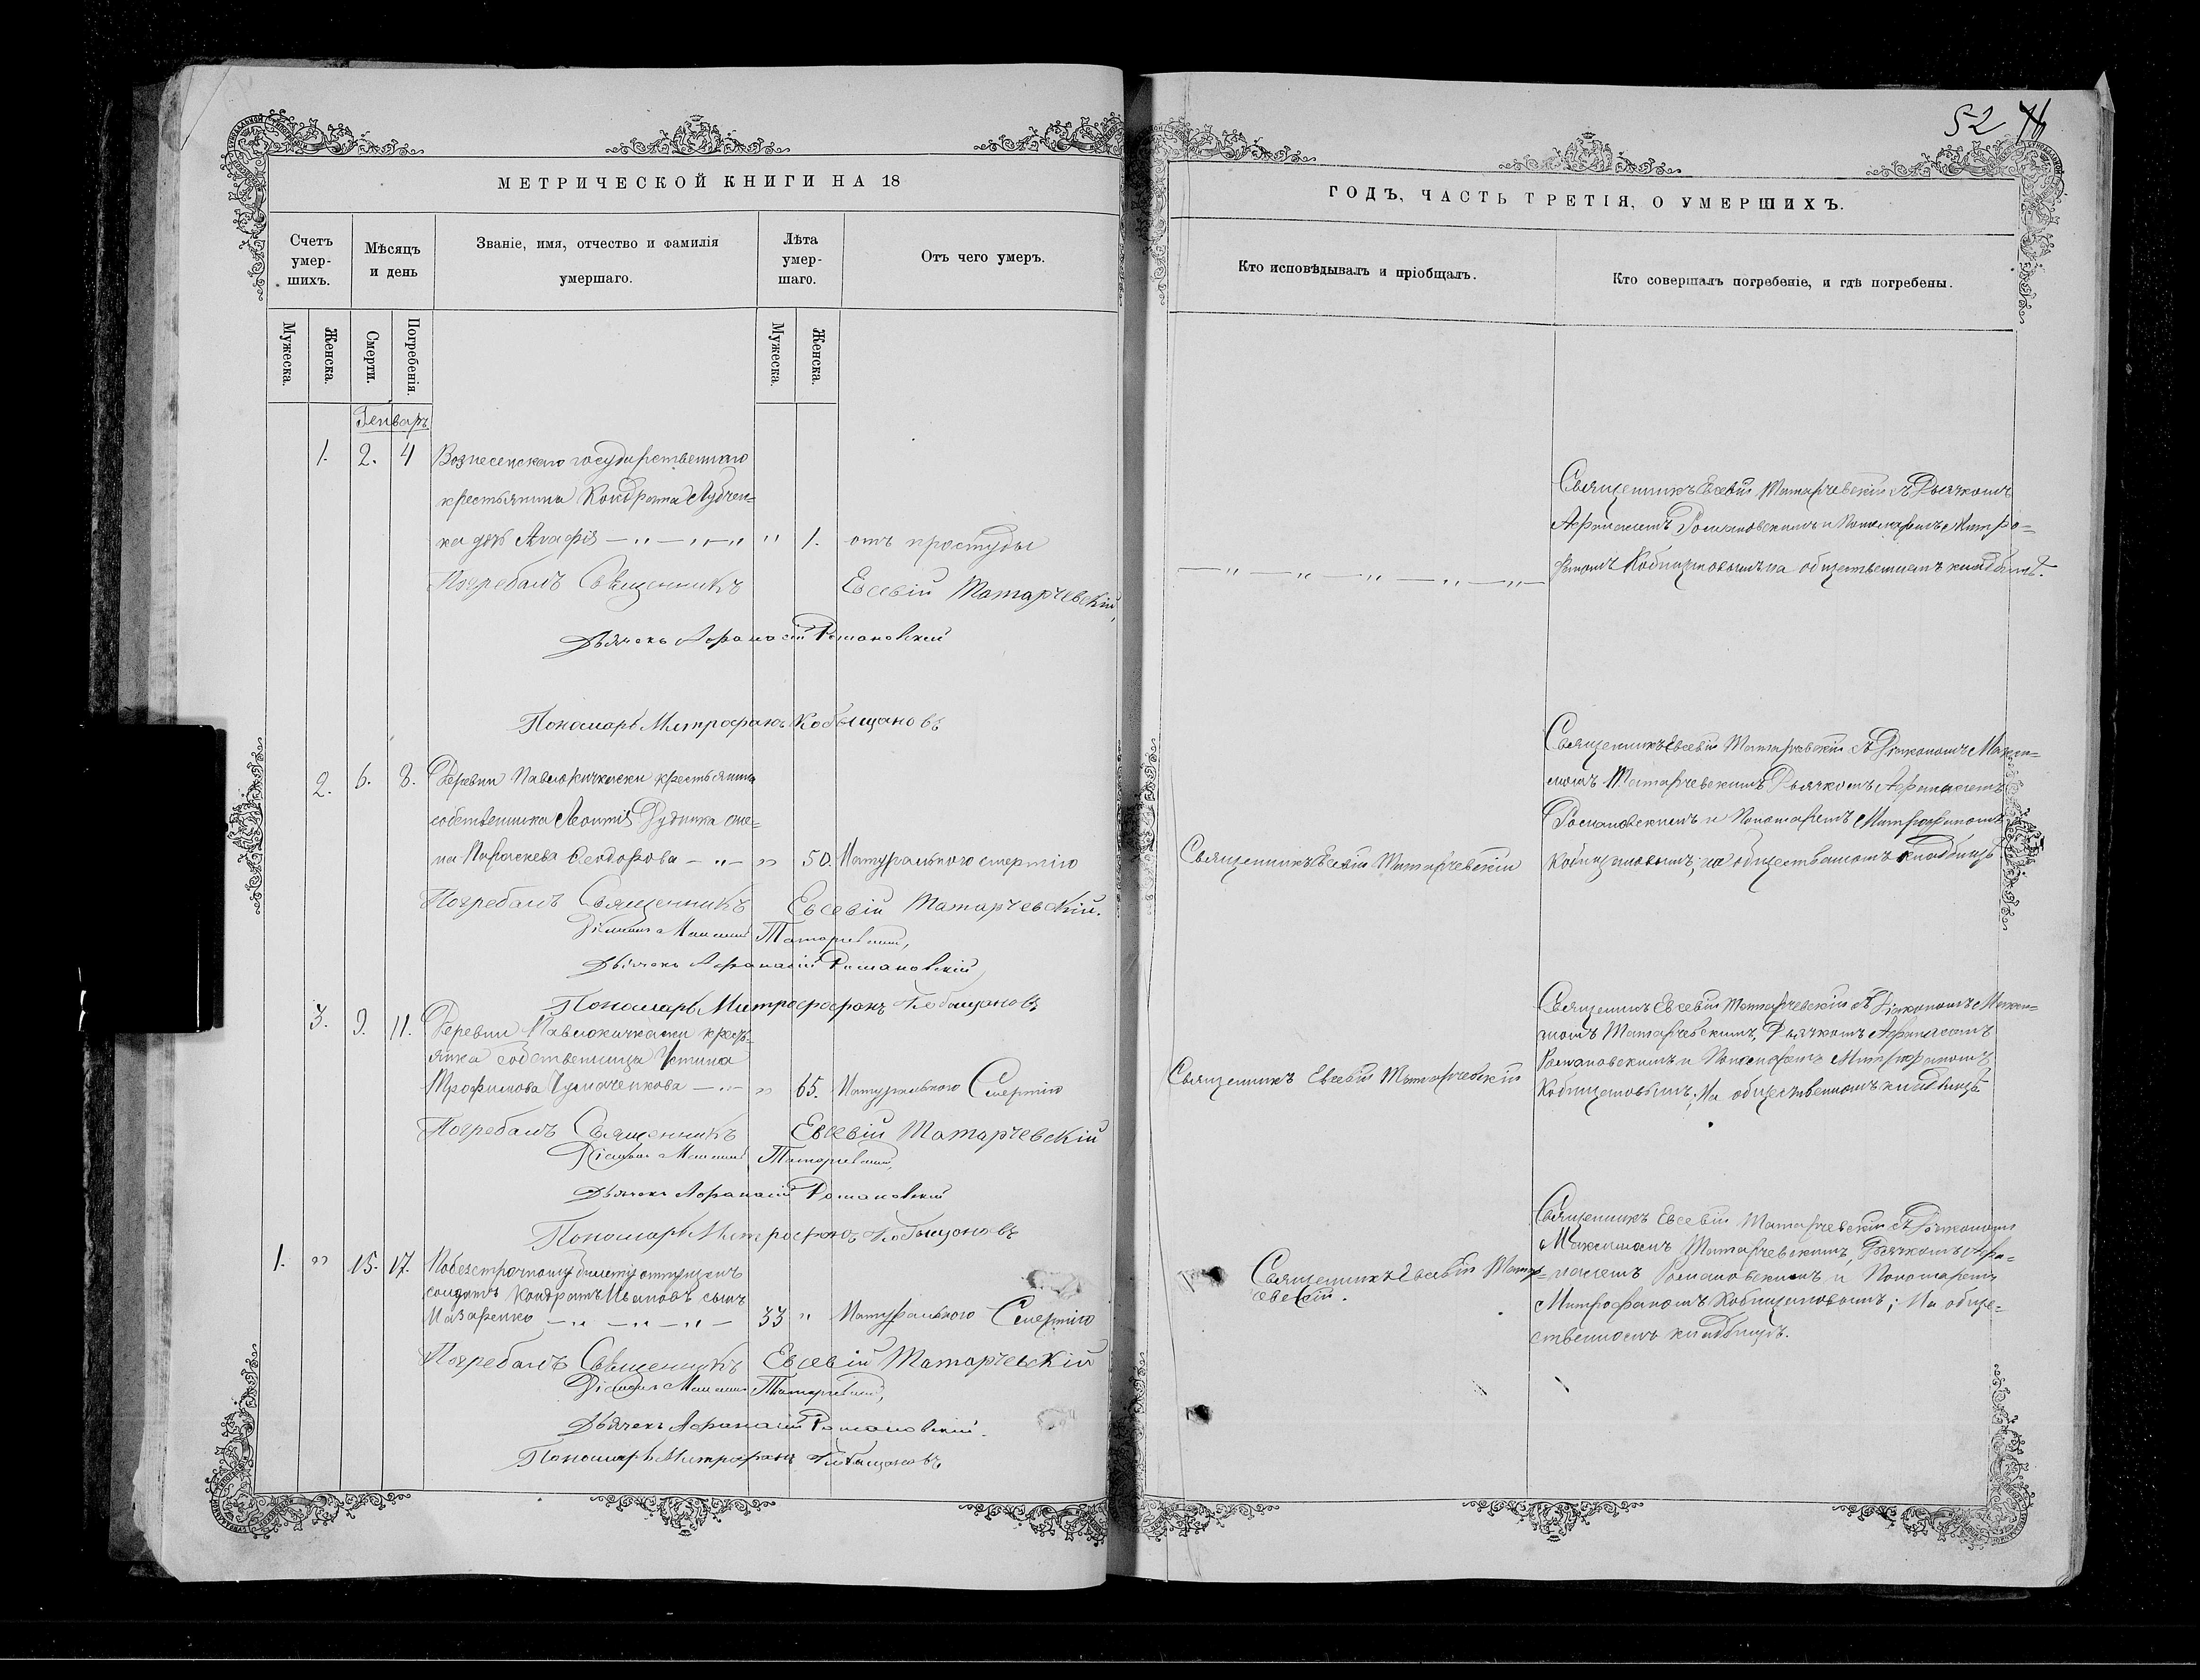 52
МЕТРИЧЕСКОЙ КНИГИ НА 18
ГОДЪ, ЧАСТЬ ТРЕТІЯ, О УМЕРШИХЪ.
Счетъ умер-шихъ.
Мѣсяцъ и день
Званіе, имя, отчество и фамилія
умершаго.
Лѣта умер-шаго.
Отъ чего умеръ.
Кто исповѣдывалъ и пріобщалъ.
Кто совершалъ погребеніе, и гдѣ погребены.
Мужеска.
Женска.
Смерти.
Погребенія.
Мужеска.
Женска.
Генварь
1. 2. 4 Вознесенскаго государственнаго
крестьянина Кондрата
Агафія — „ — „ — „ „ 1. отъ простуды
Погребалъ Священникъ Евсевій Татарчевскій,
Дьячекъ Афанасій Романовскій
Пономарь Митрофанъ Кобыщановъ
Священникъ Евсевій Татарчевскій съ Дьячкомъ
Афанасіемъ Романовскимъ и Пономаремъ Митро=
фаномъ Кобыщановымъ на общественномъ кладбищѣ.
2. 6. 8. Деревни Павлокичкаски крестьянина
собственника Леонтія Рудника же=
на Параскева Феодорова — „ — „ 50. Натуральною смертію
Погребалъ Священникъ Евсевій Татарчевскій.
Діаконъ Татарчевскій,
Дьячекъ Афанасій Романовскій
Пономарь Митрофанъ Кобыщановъ
Священникъ Евсевій Татарчевскій
Священникъ Евсевій Татарчевскій съ Діакономъ Макси=
момъ Татарчевскимъ Дьячкомъ Афанасіемъ
Романовскимъ и Пономаремъ Митрофаномъ
Кобыщановымъ; на общественномъ кладбищѣ
3. 9. 11. Деревни Павлокичкаски кресть=
янка собственница Устина
Трофимова — „ — „ 65. Натуральною Смертію
Погребалъ Священникъ Евсевій Татарчевскій
Діаконъ Татарчевскій,
Дьячекъ Афанасій Романовскій
Пономарь Митрофанъ Кобыщановъ
Священникъ Евсевій Татарчевскій
Священникъ Евсевій Татарчевскій съ Діакономъ Макси=
момъ Татарчевскимъ, Дьячкомъ Афанасіемъ
Романовскимъ и Пономаремъ Митрофаномъ
Кобыщановымъ; На общественномъ кладбищѣ
1. „ 15. 17. По безсрочному билету отпущенъ
солдатъ Кондратъ Ивановъ сынъ
Назаренко — „ — „ — „ — 33 „ Натуральною Смертію
Погребалъ Священникъ Евсевій Татарчевскій
Діаконъ Татарчевскій,
Дьячекъ Афанасій Романовскій.
Пономарь Митрофанъ Кобыщановъ
Священникъ Евсевій Татар=
чевскій.
Священникъ Евсевій Татарчевскій съ Діакономъ
Максимомъ Татарчевскимъ, Дьячкомъ Афа=
насіемъ Романовскимъ и Пономаремъ
Митрофаномъ Кобыщановымъ; На обще=
ственномъ кладбищѣ.